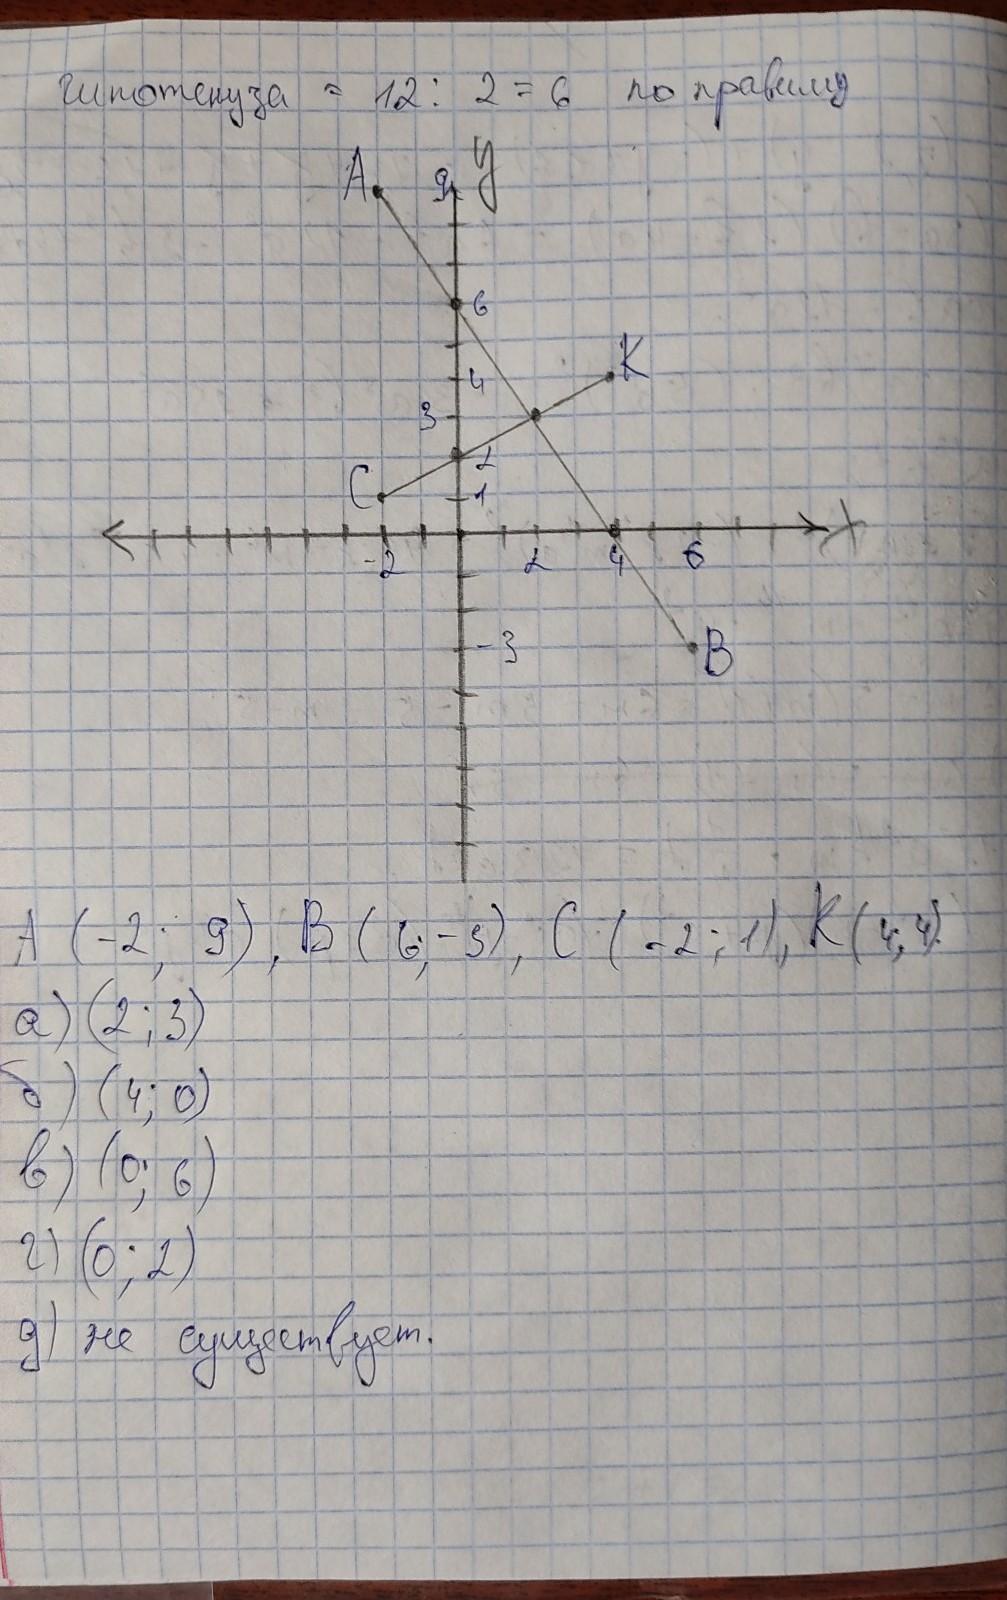 гипотенуза = 12 : 2 = 6 по правилу
A 9 y
6
K
4
3
2
C 1
x
-2 2 4 6
-3
B
A (-2; 9), B (6; -3), C (-2; 1), K (4; 4).
а) (2; 3)
б) (4; 0)
в) (0; 6)
г) (0; 2)
д) не существует.